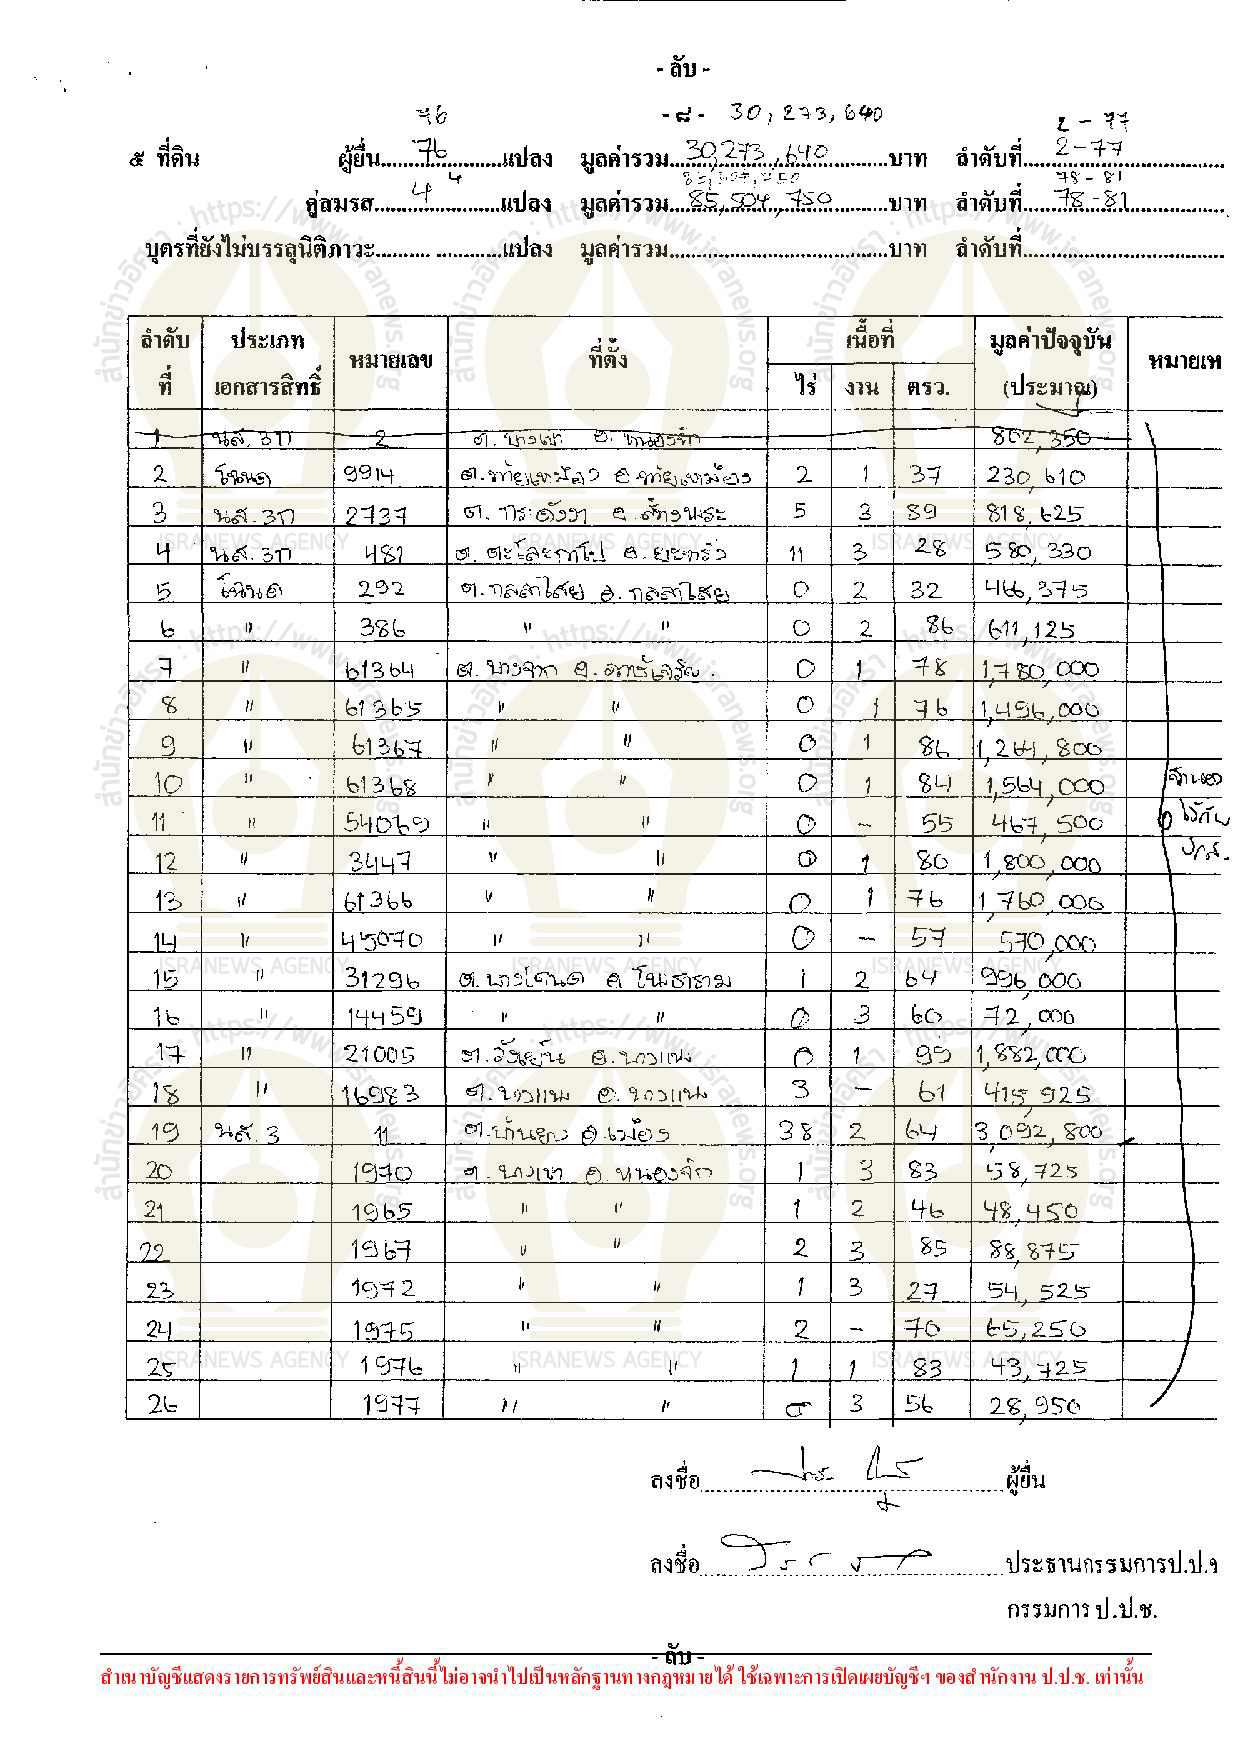 - ลับ -
76 - ๘ - 30,273,640 2-77
๕ ที่ดิน ผู้ยื่น 76 แปลง มูลค่ารวม 30,273,640 บาท ลำดับที่ 2-77
4 78-81
คู่สมรส 4 แปลง มูลค่ารวม 85,504,750 บาท ลำดับที่ 78-81
บุตรที่ยังไม่บรรลุนิติภาวะ แปลง มูลค่ารวม บาท ลำดับที่
ลำดับที่ ประเภทเอกสารสิทธิ์ หมายเลข ที่ตั้ง เนื้อที่ ไร่ งาน ตรว. มูลค่าปัจจุบัน (ประมาณ) หมายเห
1 นส.3ก 2 802,350
2 โฉนด 9914 ต.ท้ายเหมือง อ.ท้ายเหมือง 2 1 37 230,610
3 นส.3ก 2737 ต.กระดังงา อ.สทิงพระ 5 3 89 818,625
4 นส.3ก 481 ต.ตะโละกาโป อ.ยะหริ่ง 11 3 28 580,330
5 โฉนด 292 ต.กมลาไสย อ.กมลาไสย 0 2 32 466,375
6 " 386 " " 0 2 86 611,125
7 " 61364 ต.บางจาก 0 1 78 1,780,000
8 " 61365 " " 0 1 76 1,496,000
9 " 61367 " " 0 1 86 1,264,800
10 " 61368 " " 0 1 84 1,564,000
11 " 54069 " " 0 - 55 467,500
12 " 3447 " " 0 1 80 1,800,000
13 " 61366 " " 0 1 76 1,760,000
14 " 45070 " " 0 - 57 570,000
15 " 31296 ต.บางโตนด อ.โพธาราม 1 2 64 996,000
16 " 14459 " " 0 3 60 72,000
17 " 21005 ต.วังเย็น อ.บางแพ 0 1 95 1,882,000
18 " 16983 ต.บางแพ อ.บางแพ 3 - 61 415,925
19 นส.3 11 อ.เมือง 38 2 64 3,092,800
20 1970 ต.บางเขา อ.หนองจิก 1 3 83 58,725
21 1965 " " 1 2 46 48,450
22 1967 " " 2 3 85 88,875
23 1972 " " 1 3 27 54,525
24 1975 " " 2 - 70 65,250
25 1976 " " 1 1 83 43,725
26 1977 " " 0 3 56 28,950
ลงชื่อ ผู้ยื่น
ลงชื่อ ประธานกรรมการ ป.ป.ช
กรรมการ ป.ป.ช.
- ลับ -
สำเนาบัญชีแสดงรายการทรัพย์สินและหนี้สินนี้ไม่อาจนำไปเป็นหลักฐานทางกฎหมายได้ ใช้เฉพาะการเปิดเผยบัญชีฯ ของสำนักงาน ป.ป.ช. เท่านั้น
สำนักข่าวอิศรา : https://www.isranews.org
ISRANEWS AGENCY